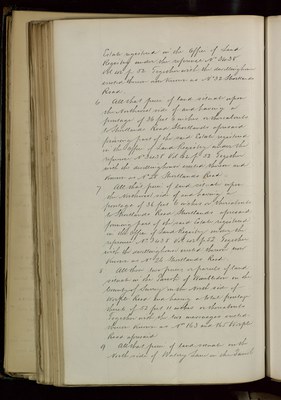 Estate registered in the Office of Land
Registry under the reference No 3438
Vol p. 12 Together with the dwellinghouse
erected thereon and known as No 32 Shortlands
Road
6 All that piece of land situate upon
the Northern side of and having a
frontage of 36 feet 6 inches or thereabouts
to Shortlands Road Shortlands aforesaid
forming part of the said Estate registered
in the Office of Land Registry under the
reference No 3438 Vol p. 12 Together
with the dwellinghouse erected thereon and
known as No 28 Shortlands Road
7 All that piece of land situate upon
the Northern side of and having a
frontage of 36 feet 6 inches or thereabouts
to Shortlands Road Shortlands aforesaid
forming part of the said Estate registered
in the Office of Land Registry under the
reference No 3438 Vol p. 12 Together
with the dwellinghouse erected thereon and
known as No 26 Shortlands Road
8 All those two pieces or parcels of land
situate in the Parish of Wimbledon in the
County of Surrey on the North side of
Road and having a total frontage
thereto of 33 feet 10 inches or thereabouts
Together with the two messuages erected
thereon known as No 163 and 165
Road aforesaid
9 All that piece of land situate on the
North side of Lane in the Parish